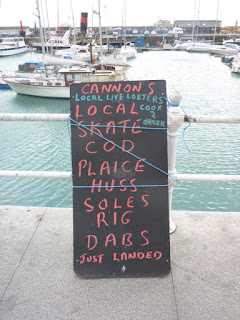 CANNON'S
LOCAL LIVE LOBTERS
LOCAL COOK
2
ORDER
SKATE
COD
PLAICE
HUSS
SOLES
RIG
DABS
JUST LANDED